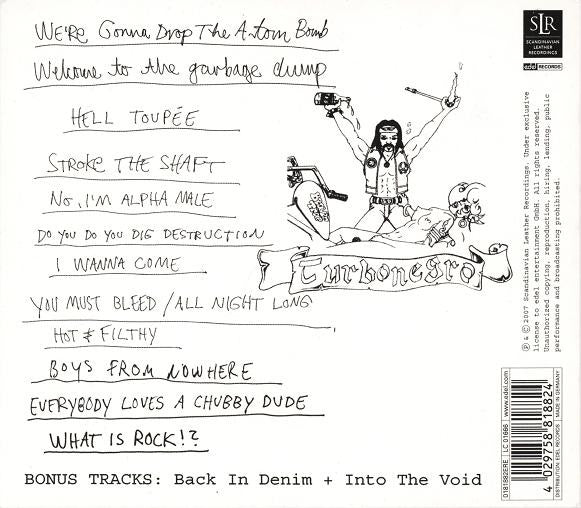 We're Gonna Drop The A-tom Bomb
Welcome to the garbage dump
HELL TOUPÉE
STROKE THE SHAFT
NO, I'M ALPHA MALE
DO YOU DO YOU DIG DESTRUCTION
I WANNA COME
YOU MUST BLEED / ALL NIGHT LONG
HOT & FILTHY
BOYS FROM NOWHERE
EVERYBODY LOVES A CHUBBY DUDE
WHAT IS ROCK!?
BONUS TRACKS: Back In Denim + Into The Void
Turbonegro
SLR
SCANDINAVIAN
LEATHER
RECORDINGS
edel RECORDS
℗ & © 2007 Scandinavian Leather Recordings. Under exclusive
license to edel entertainment GmbH. All rights reserved.
Unauthorized copying, reproduction, hiring, lending, public
performance and broadcasting prohibited.
0181882ERE | LC 01666 | www.edel.com
4 029758 818824
DISTRIBUTION EDEL RECORDS | MADE IN GERMANY